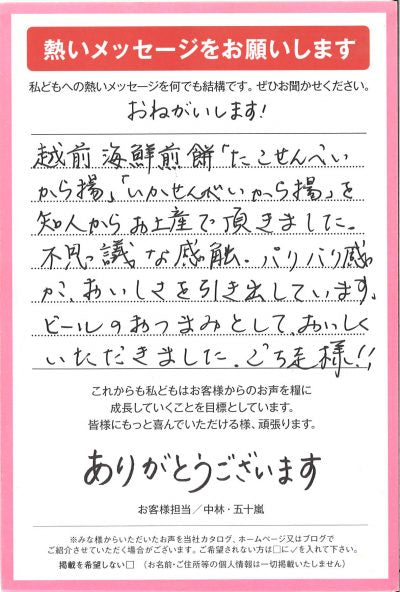 熱いメッセージをお願いします
私どもへの熱いメッセージを何でも結構です。ぜひお聞かせください。
おねがいします!
越前海鮮煎餅「たこせんべい
から揚」「いかせんべいから揚」を
知人からお土産で頂きました。
不思議な感触、パリパリ感
が、おいしさを引き出しています。
ビールのおつまみとして、おいしく
いただきました。ごち走様!!
これからも私どもはお客様からのお声を糧に
成長していくことを目標としています。
皆様にもっと喜んでいただける様、頑張ります。
ありがとうございます
お客様担当／中林・五十嵐
※みな様からいただいたお声を当社カタログ、ホームページ又はブログで
ご紹介させていただく場合がございます。ご希望されない方は□に✓を入れて下さい。
掲載を希望しない□ （お名前・ご住所等の個人情報は一切掲載いたしません）